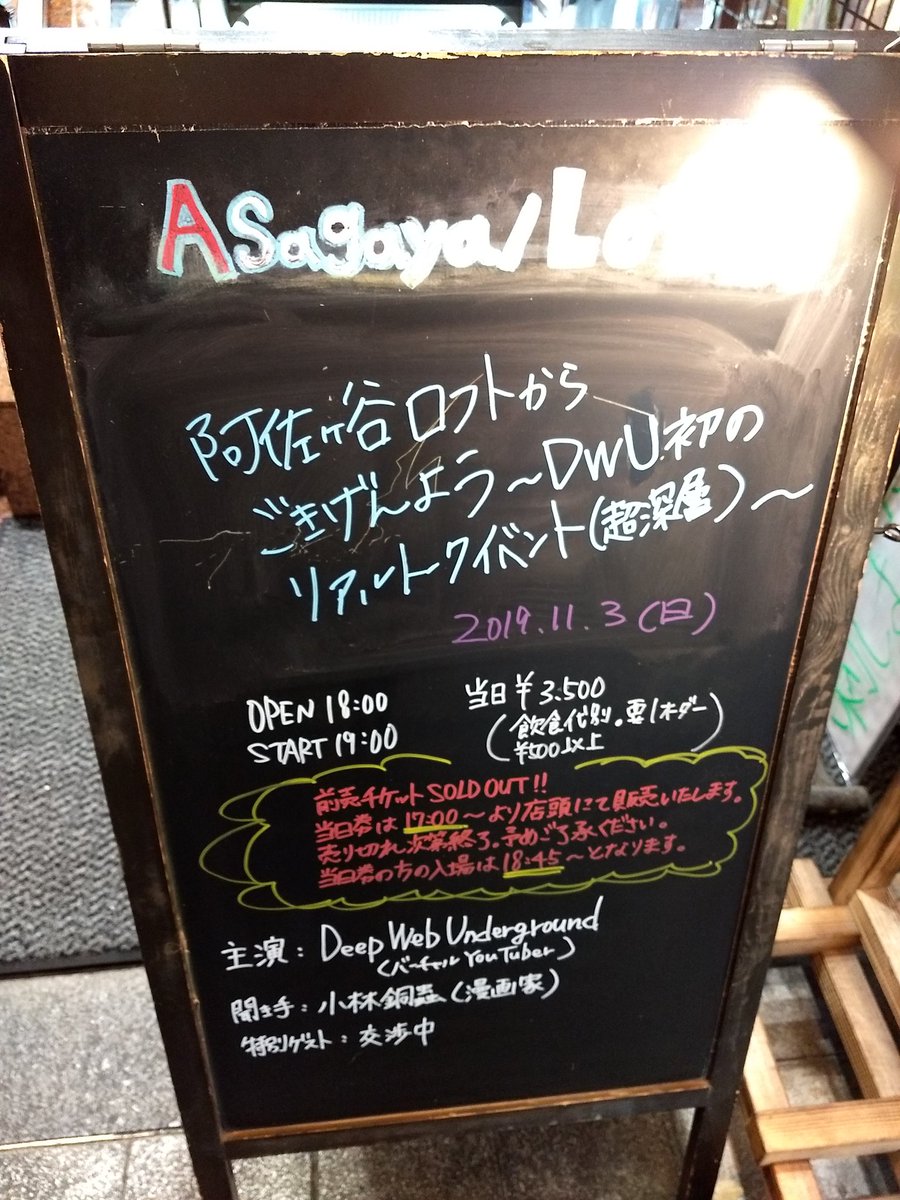 Asagaya/Lo
阿佐ヶ谷ロフトから
ごきげんよう～DWU初の
リアルトークイベント(超深層)～
2019.11.3(日)
OPEN 18:00
START 19:00
当日 ¥3.500
(飲食代別。要1オーダー
¥500以上)
前売チケット SOLD OUT!!
当日券は 17:00～より店頭にて販売いたします。
売り切れ次第終了。予めご了承ください。
当日券の方の入場は 18:45～となります。
主演：Deep Web Underground
(バーチャル YouTuber)
聞き手：小林銅蟲(漫画家)
特別ゲスト：交渉中